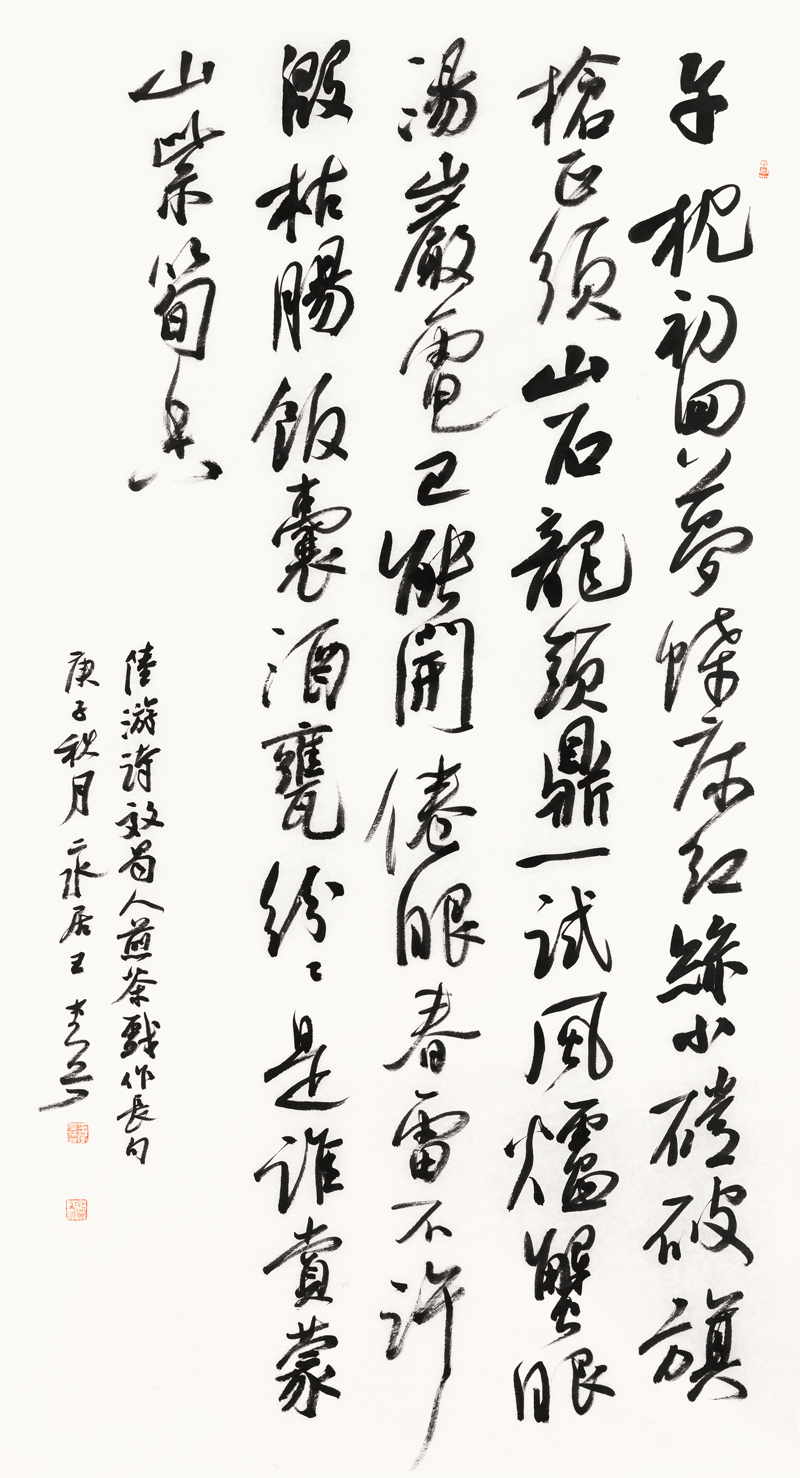 午枕初回夢蝶床紅絲小磑破旗
槍正須山石龍頭鼎一試風爐蟹眼
湯巖電已能開倦眼春雷不許
殷枯腸飯囊酒甕紛〻是誰賞蒙
山紫筍香
陸游詩效蜀人煎茶戲作長句
庚子秋月